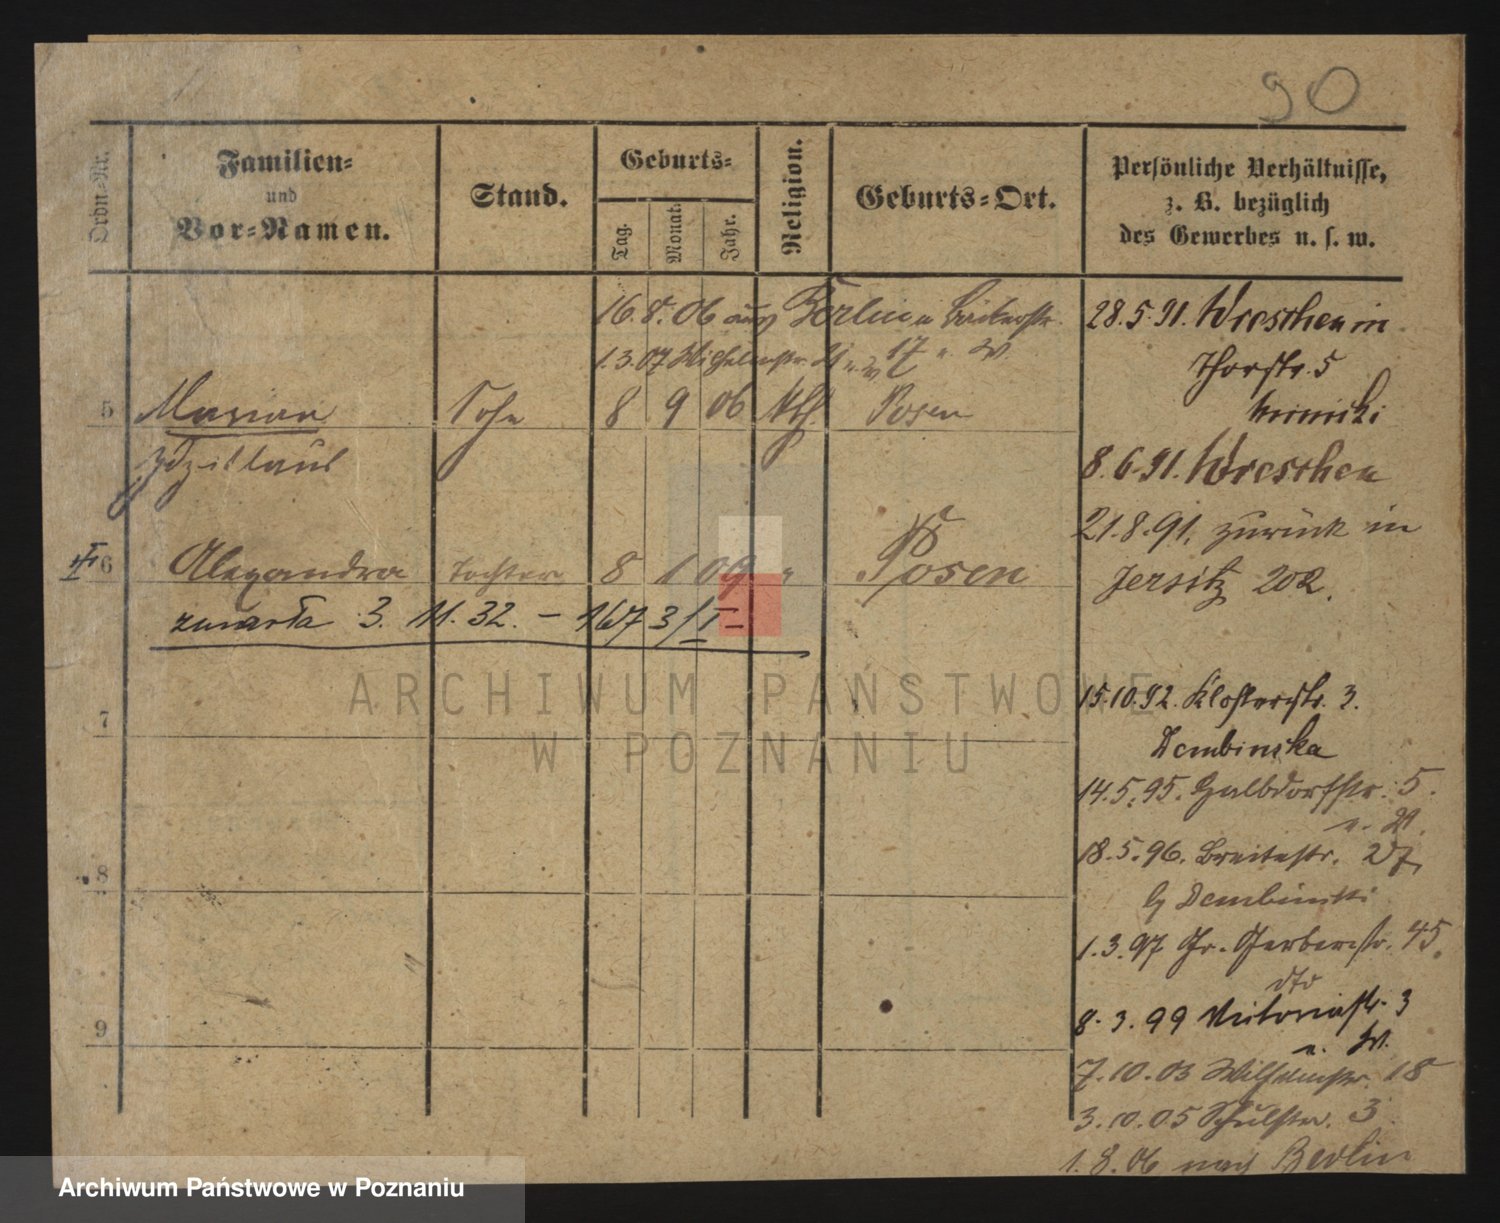 90
Ordn-Nr.
Familien-
und
Vor-Namen.
Stand.
Geburts-
Tag.
Monat.
Jahr.
Religion.
Geburts-Ort.
Persönliche Verhältnisse,
z. B. bezüglich
des Gewerbes u. s. w.
16.8.06 aus Berlin
1.3.07 17 W
5 Marian Sohn 8 9 06 kth. Posen
6 Alexandra Tochter 8 1 09 " Posen
zmarła 3. 11. 32. – 1673/I –
7
8
9
28.5.91. Wreschen in
Thorstr. 5
8.6.91. Wreschen
21.8.91. zurück in
Jersitz 202.
15.10.92. Klosterstr. 3.
Dembinska
14.5.95. Halbdorfstr. 5.
18.5.96. Breitestr. 27,
b Dembinski
1.3.97 Gr. Gerberstr. 45.
dto
8.3.99 Victoriastr. 3
u. W.
7.10.03 Wilhelmstr. 18
3.10.05 Schulstr. 3
1.8.06 nach Berlin
ARCHIWUM PAŃSTWOWE
W POZNANIU
Archiwum Państwowe w Poznaniu